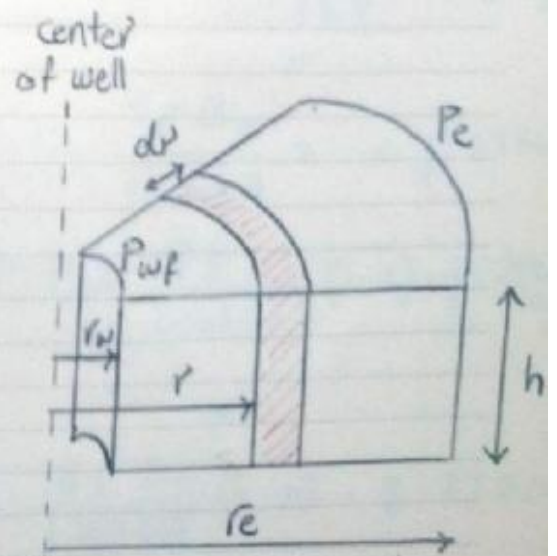 center
of well
dr
Pe
Pwf
rw
r
h
re